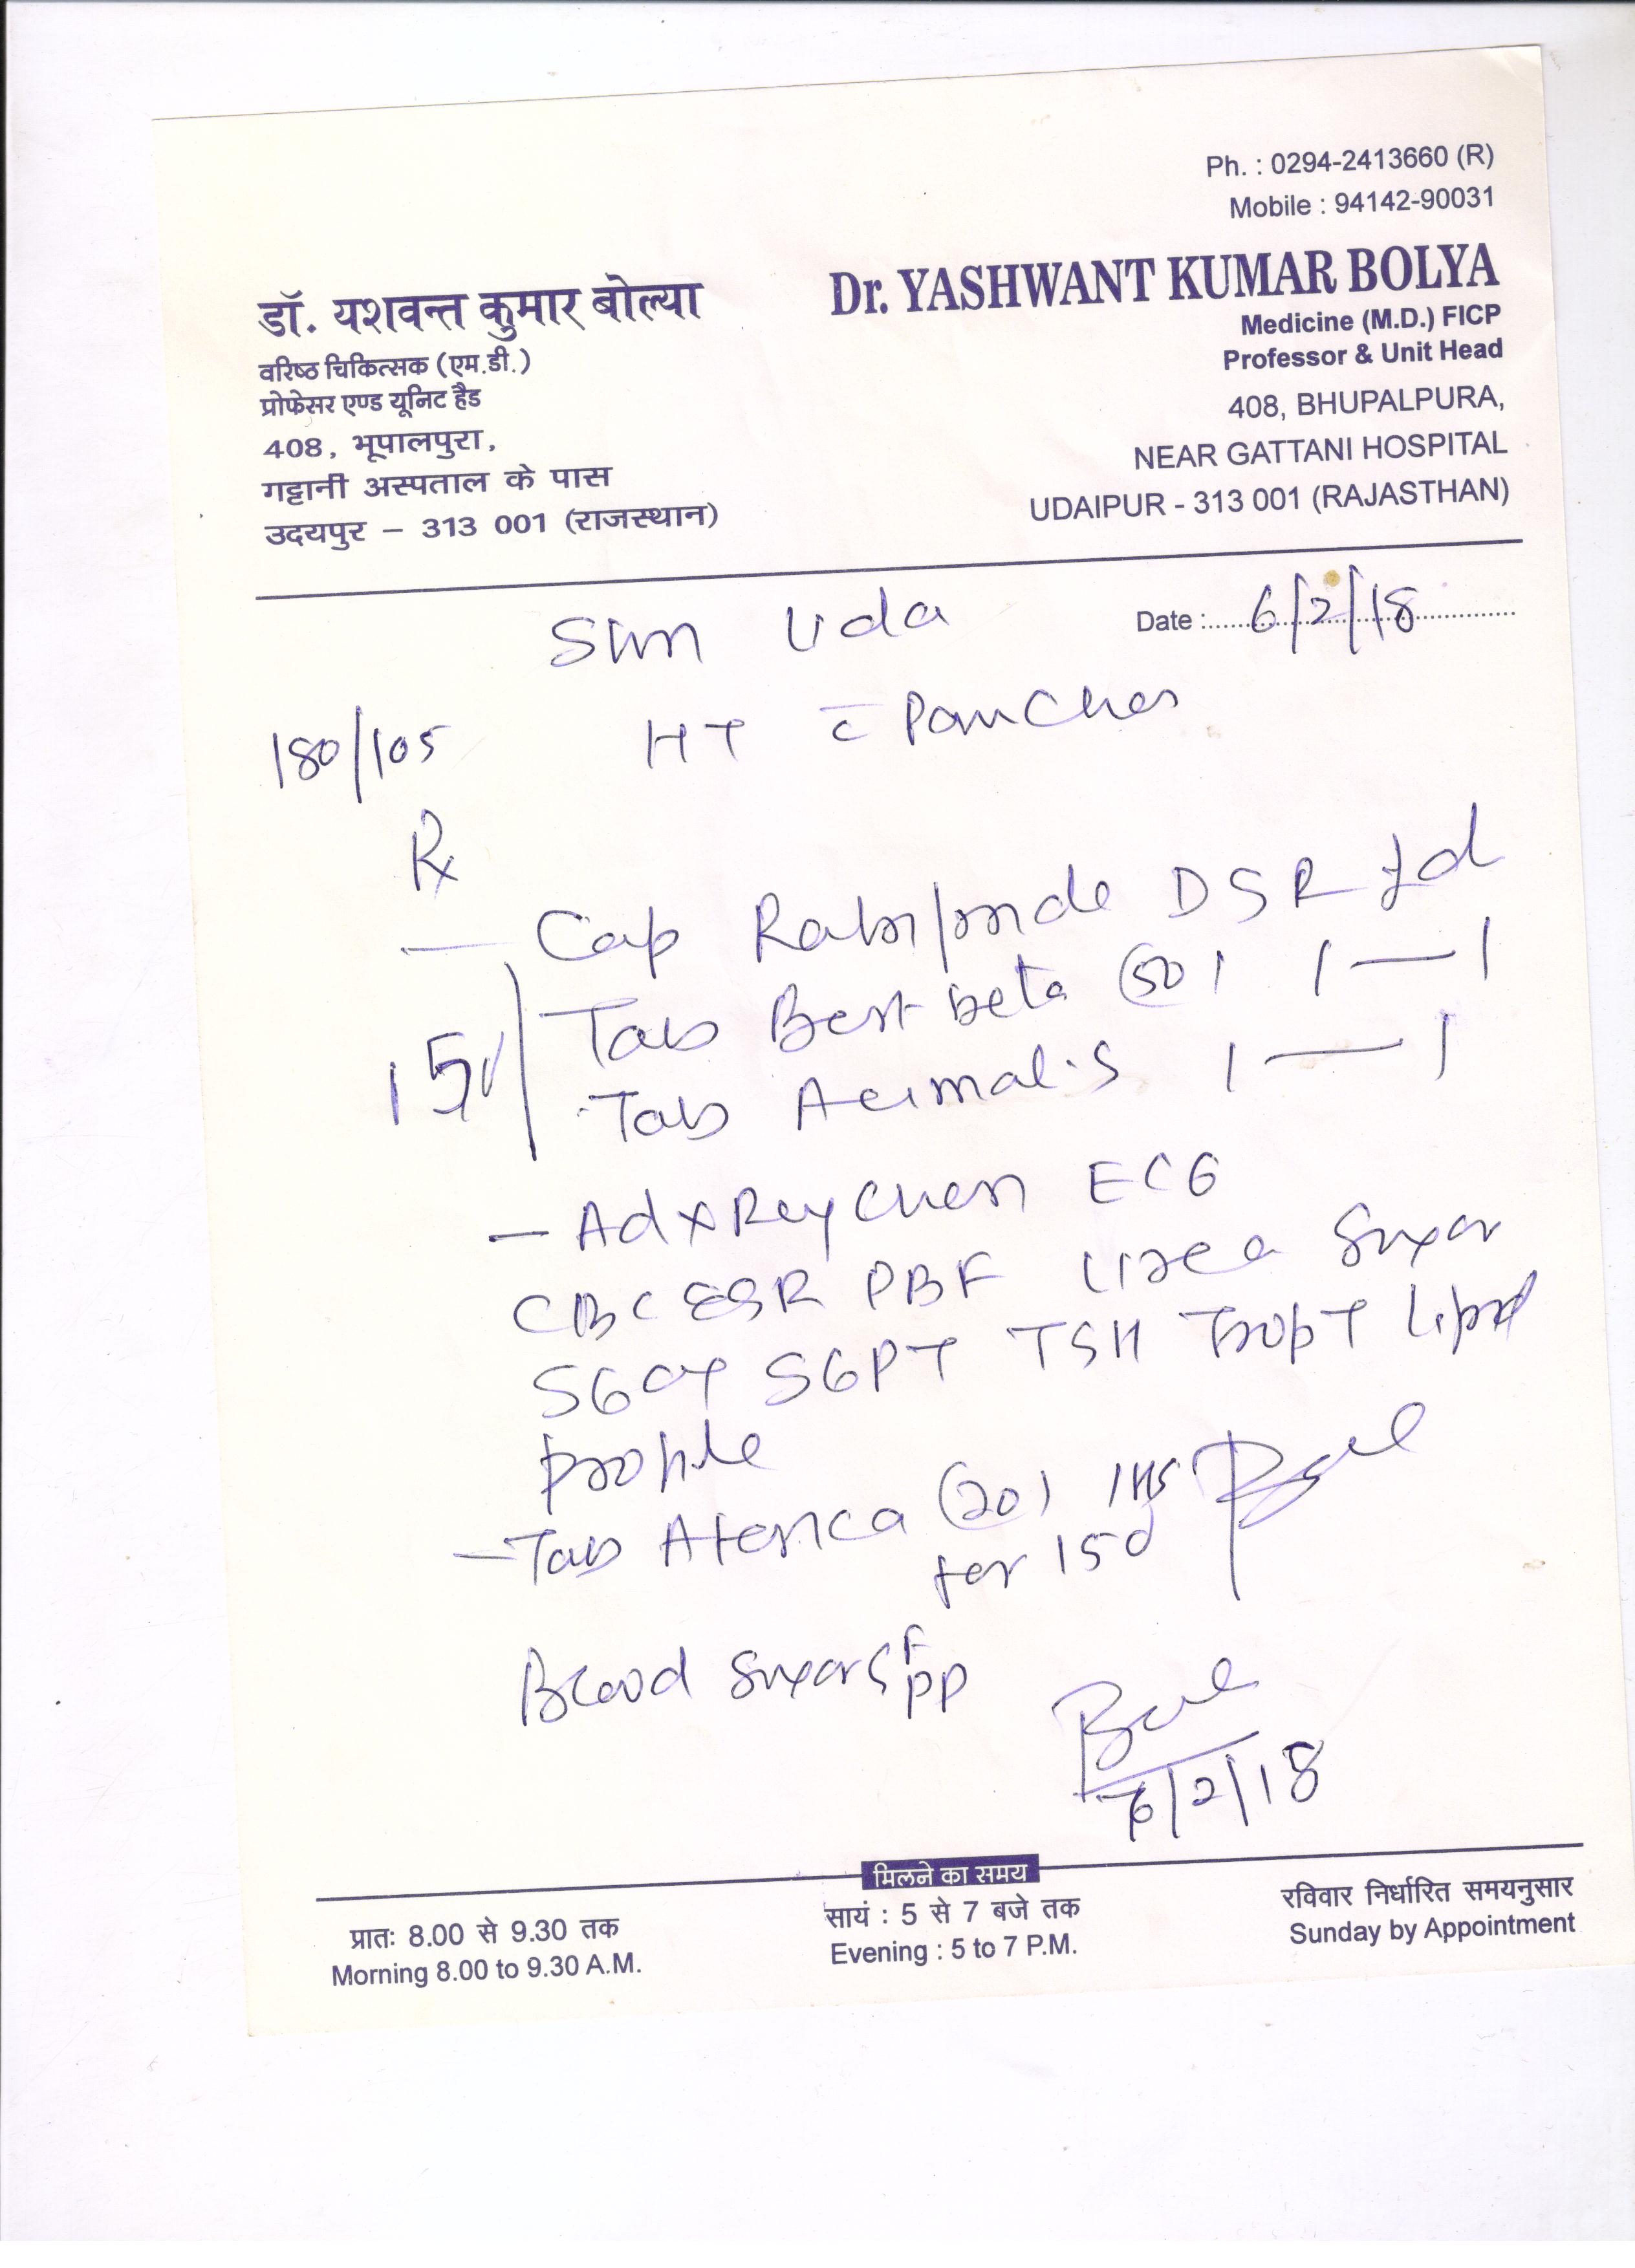 Ph. : 0294-2413660 (R)
Mobile : 94142-90031
डॉ. यशवन्त कुमार बोल्या
वरिष्ठ चिकित्सक (एम.डी.)
प्रोफेसर एण्ड यूनिट हैड
408, भूपालपुरा,
गट्टानी अस्पताल के पास
उदयपुर – 313 001 (राजस्थान)
Dr. YASHWANT KUMAR BOLYA
Medicine (M.D.) FICP
Professor & Unit Head
408, BHUPALPURA,
NEAR GATTANI HOSPITAL
UDAIPUR - 313 001 (RAJASTHAN)
Uda
Date : 6/2/18
180/105 HT c̄
Rx
Cap DSR
Tab Best beta (50) 1 — 1
15d
Tab 1 — 1
- Ad X Ray Chest ECG
CBC ESR PBF Urea Sugar
SGOT SGPT TSH TropT Lipid
profile
- Tab (20) 1 HS
for 15d
Blood Sugars F
PP
6/2/18
मिलने का समय
प्रातः 8.00 से 9.30 तक
Morning 8.00 to 9.30 A.M.
सायं : 5 से 7 बजे तक
Evening : 5 to 7 P.M.
रविवार निर्धारित समयनुसार
Sunday by Appointment